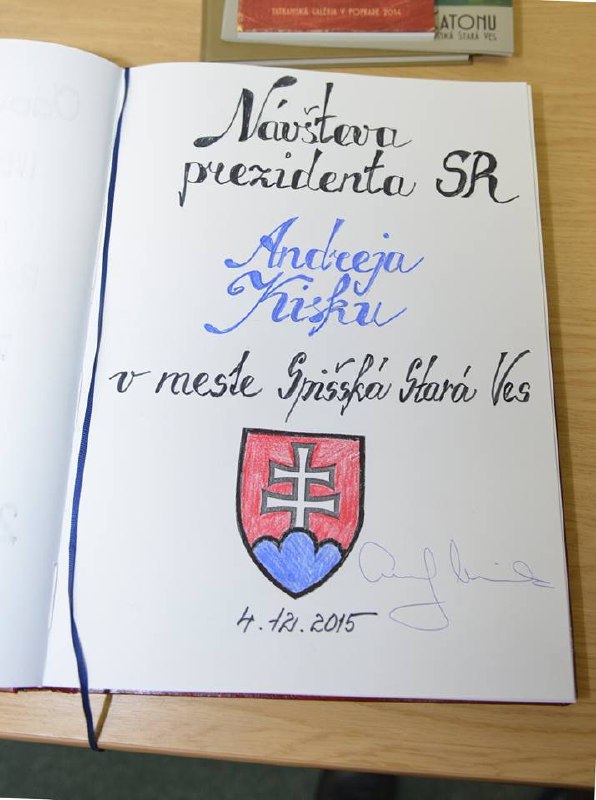 TATRANSKÁ GALÉRIA V POPRADE 2014
ATONU
STARÁ VES
Návšteva
prezidenta SR
Andreja
Kisku
v meste Spišská Stará Ves
4.12.2015